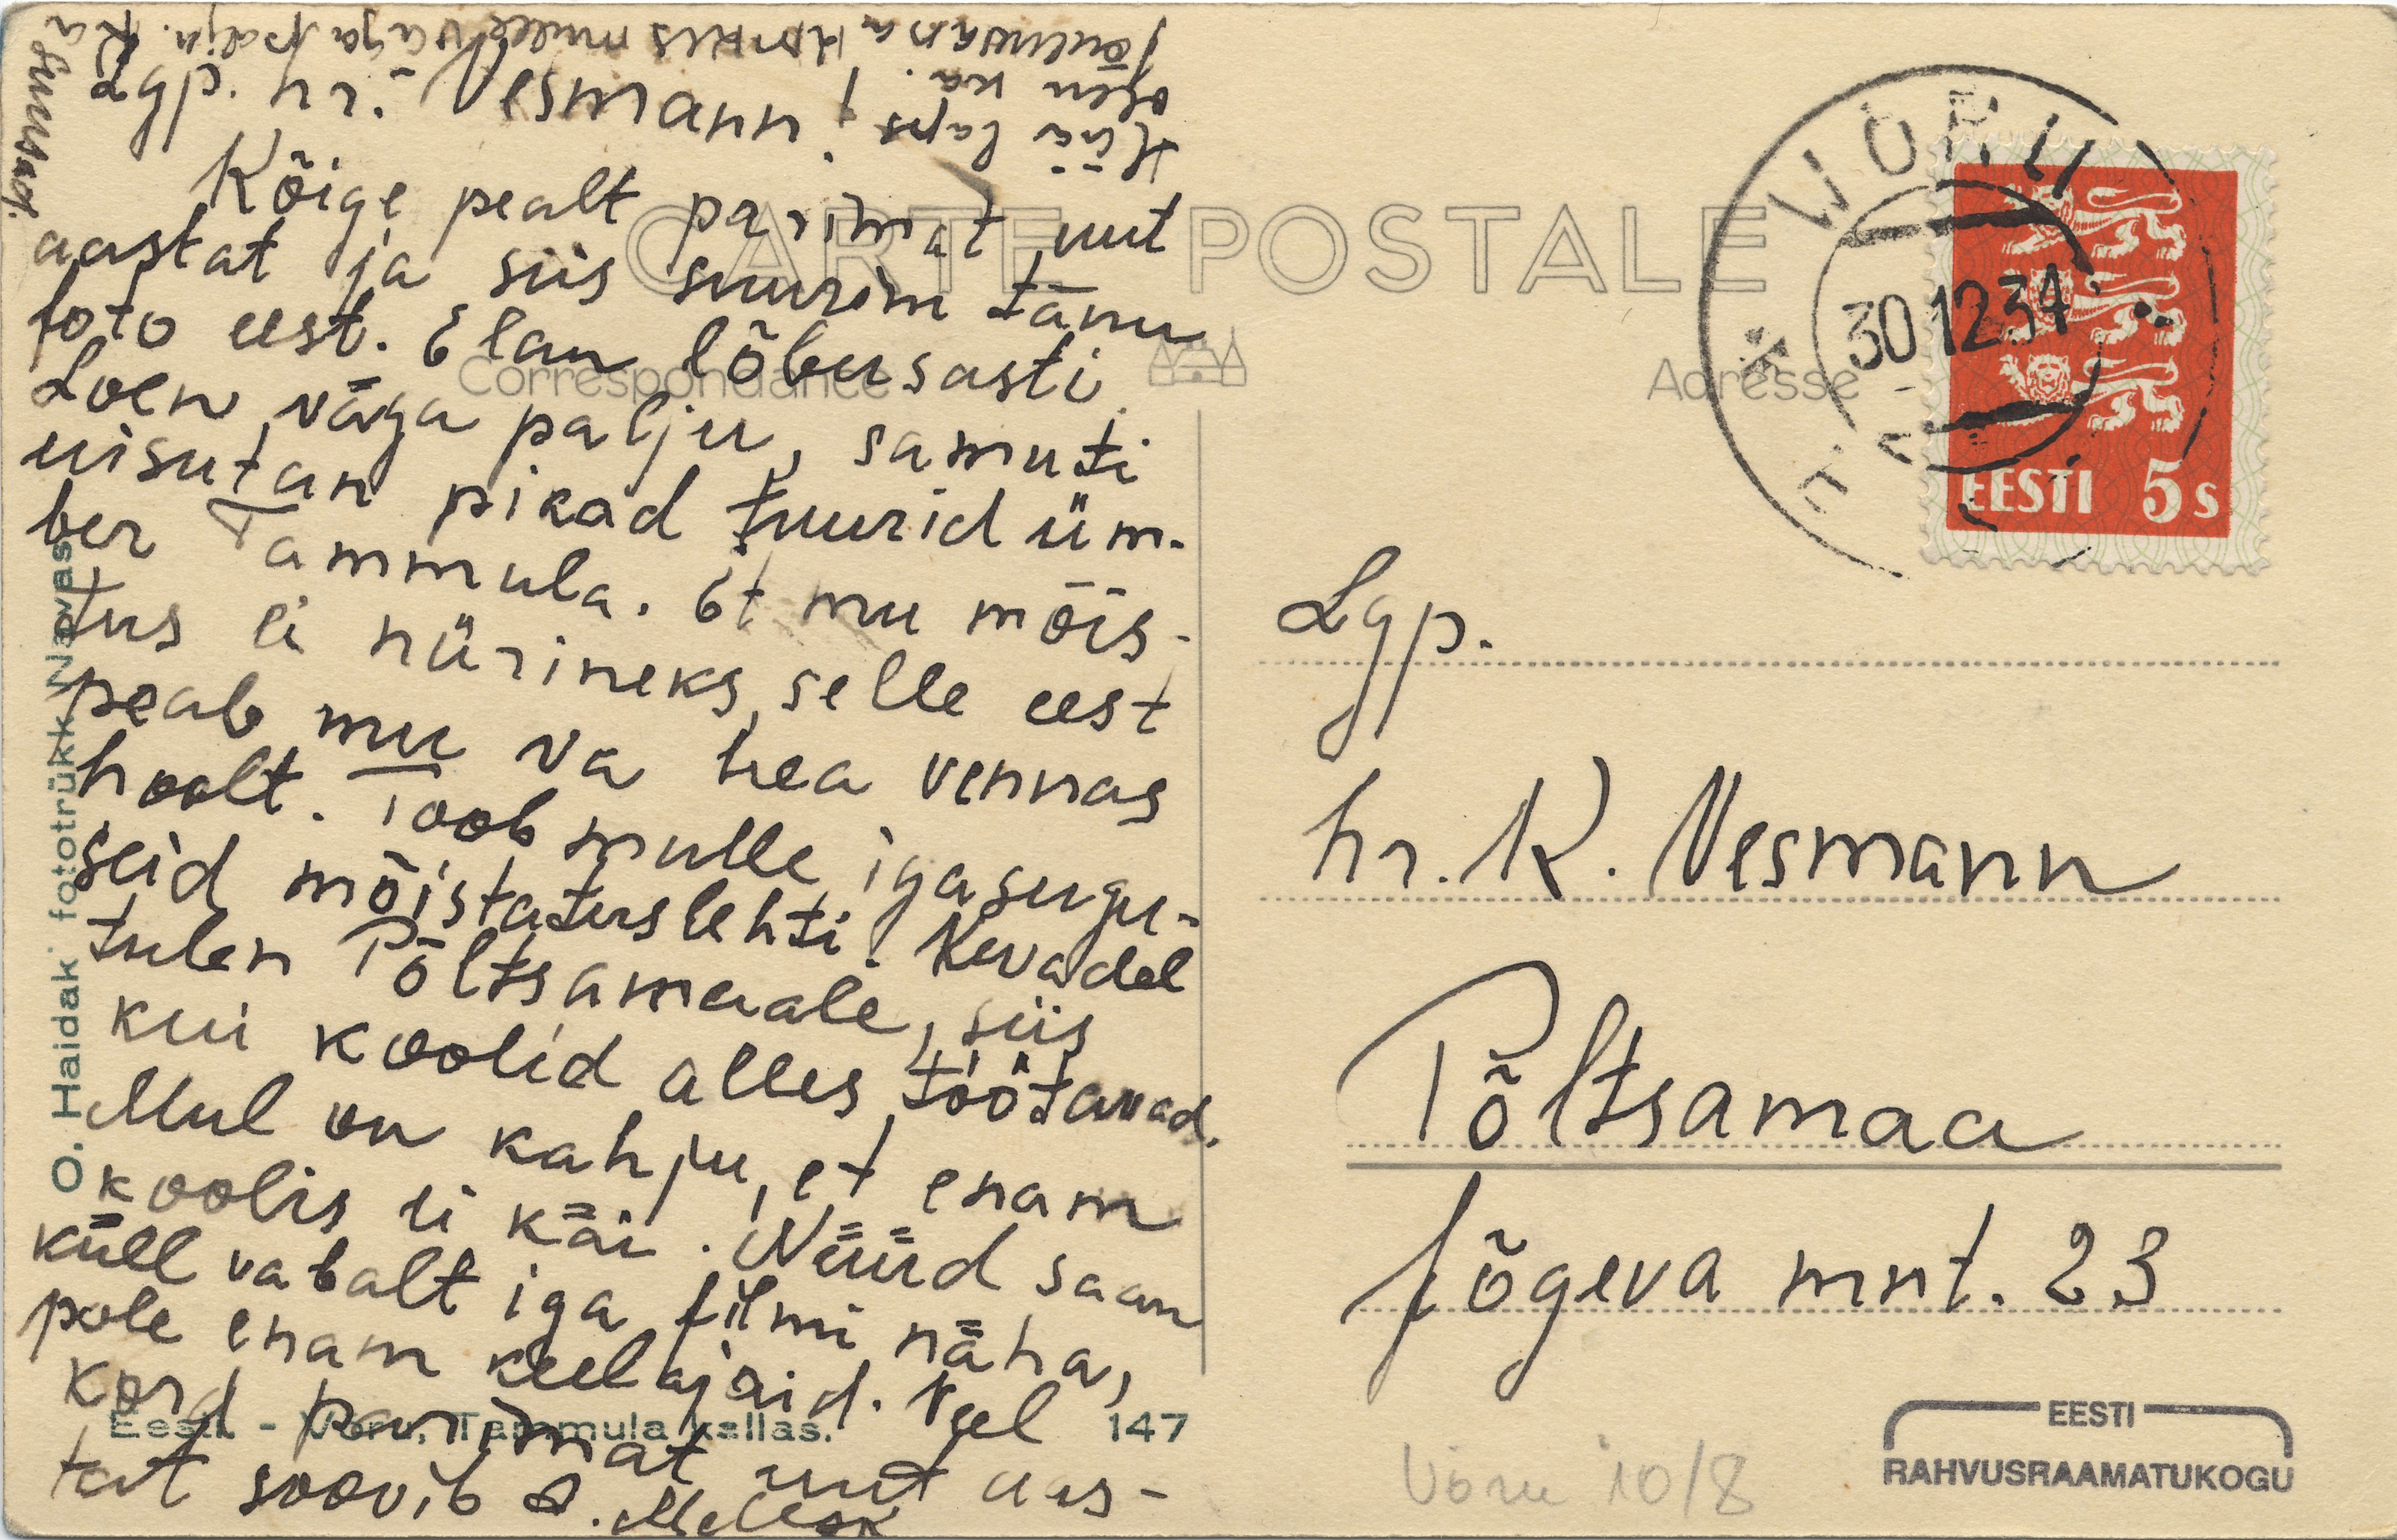 Lgp. hr. Nesmann!
Kõige pealt parimat uut
aastat ja siis suurim tänu
foto eest. Elan lõbusasti.
Loen väga palju, samuti
uisutan pikad tuurid üm-
ber Tammula. Et mu mõis-
tus ei nürineks, selle eest
peab mu va hea vennas
hoolt. Toob mulle igasugu-
seid mõistatuslehti. Kevadel
tulen Põltsamaale, siis
kui koolid alles töötavad.
Mul on kahju, et enam
koolis ei käi. Nüüd saan
küll vabalt iga filmi näha,
pole enam keelajaid. Veel
kord parimat uut aas-
tat soovib
jõuluvana kinkis mulle väga palju. Ka
olen ka.
Hää laps
suusad.
CARTE POSTALE
Correspondance
Adresse
WÕRU
30 12 34
EESTI 5 s
Lgp.
hr. K. Nesmann
Põltsamaa
Jõgeva mnt. 23
O. Haidak' fototrükk Narvas
Eesti - Võru, Tammula kallas. 147
Võru 10/8
EESTI
RAHVUSRAAMATUKOGU